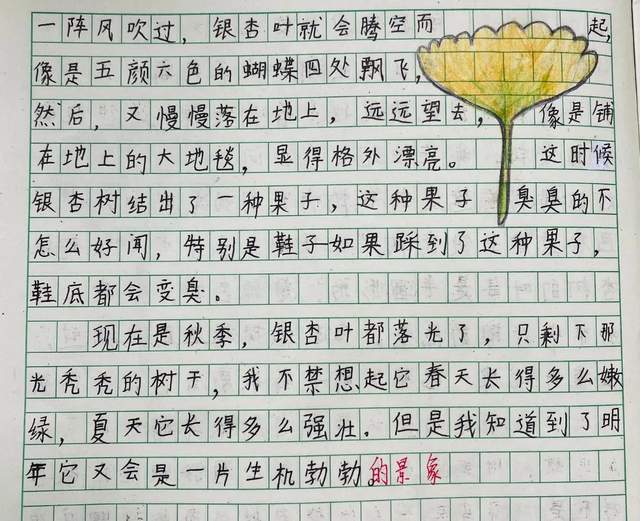 一阵风吹过，银杏叶就会腾空而起，
像是五颜六色的蝴蝶四处飘飞，
然后，又慢慢落在地上，远远望去，像是铺
在地上的大地毯，显得格外漂亮。这时候
银杏树结出了一种果子，这种果子臭臭的不
怎么好闻，特别是鞋子如果踩到了这种果子，
鞋底都会变臭。
现在是秋季，银杏叶都落光了，只剩下那
光秃秃的树干，我不禁想起它春天长得多么嫩
绿，夏天它长得多么强壮。但是我知道到了明
年它又会是一片生机勃勃的景象